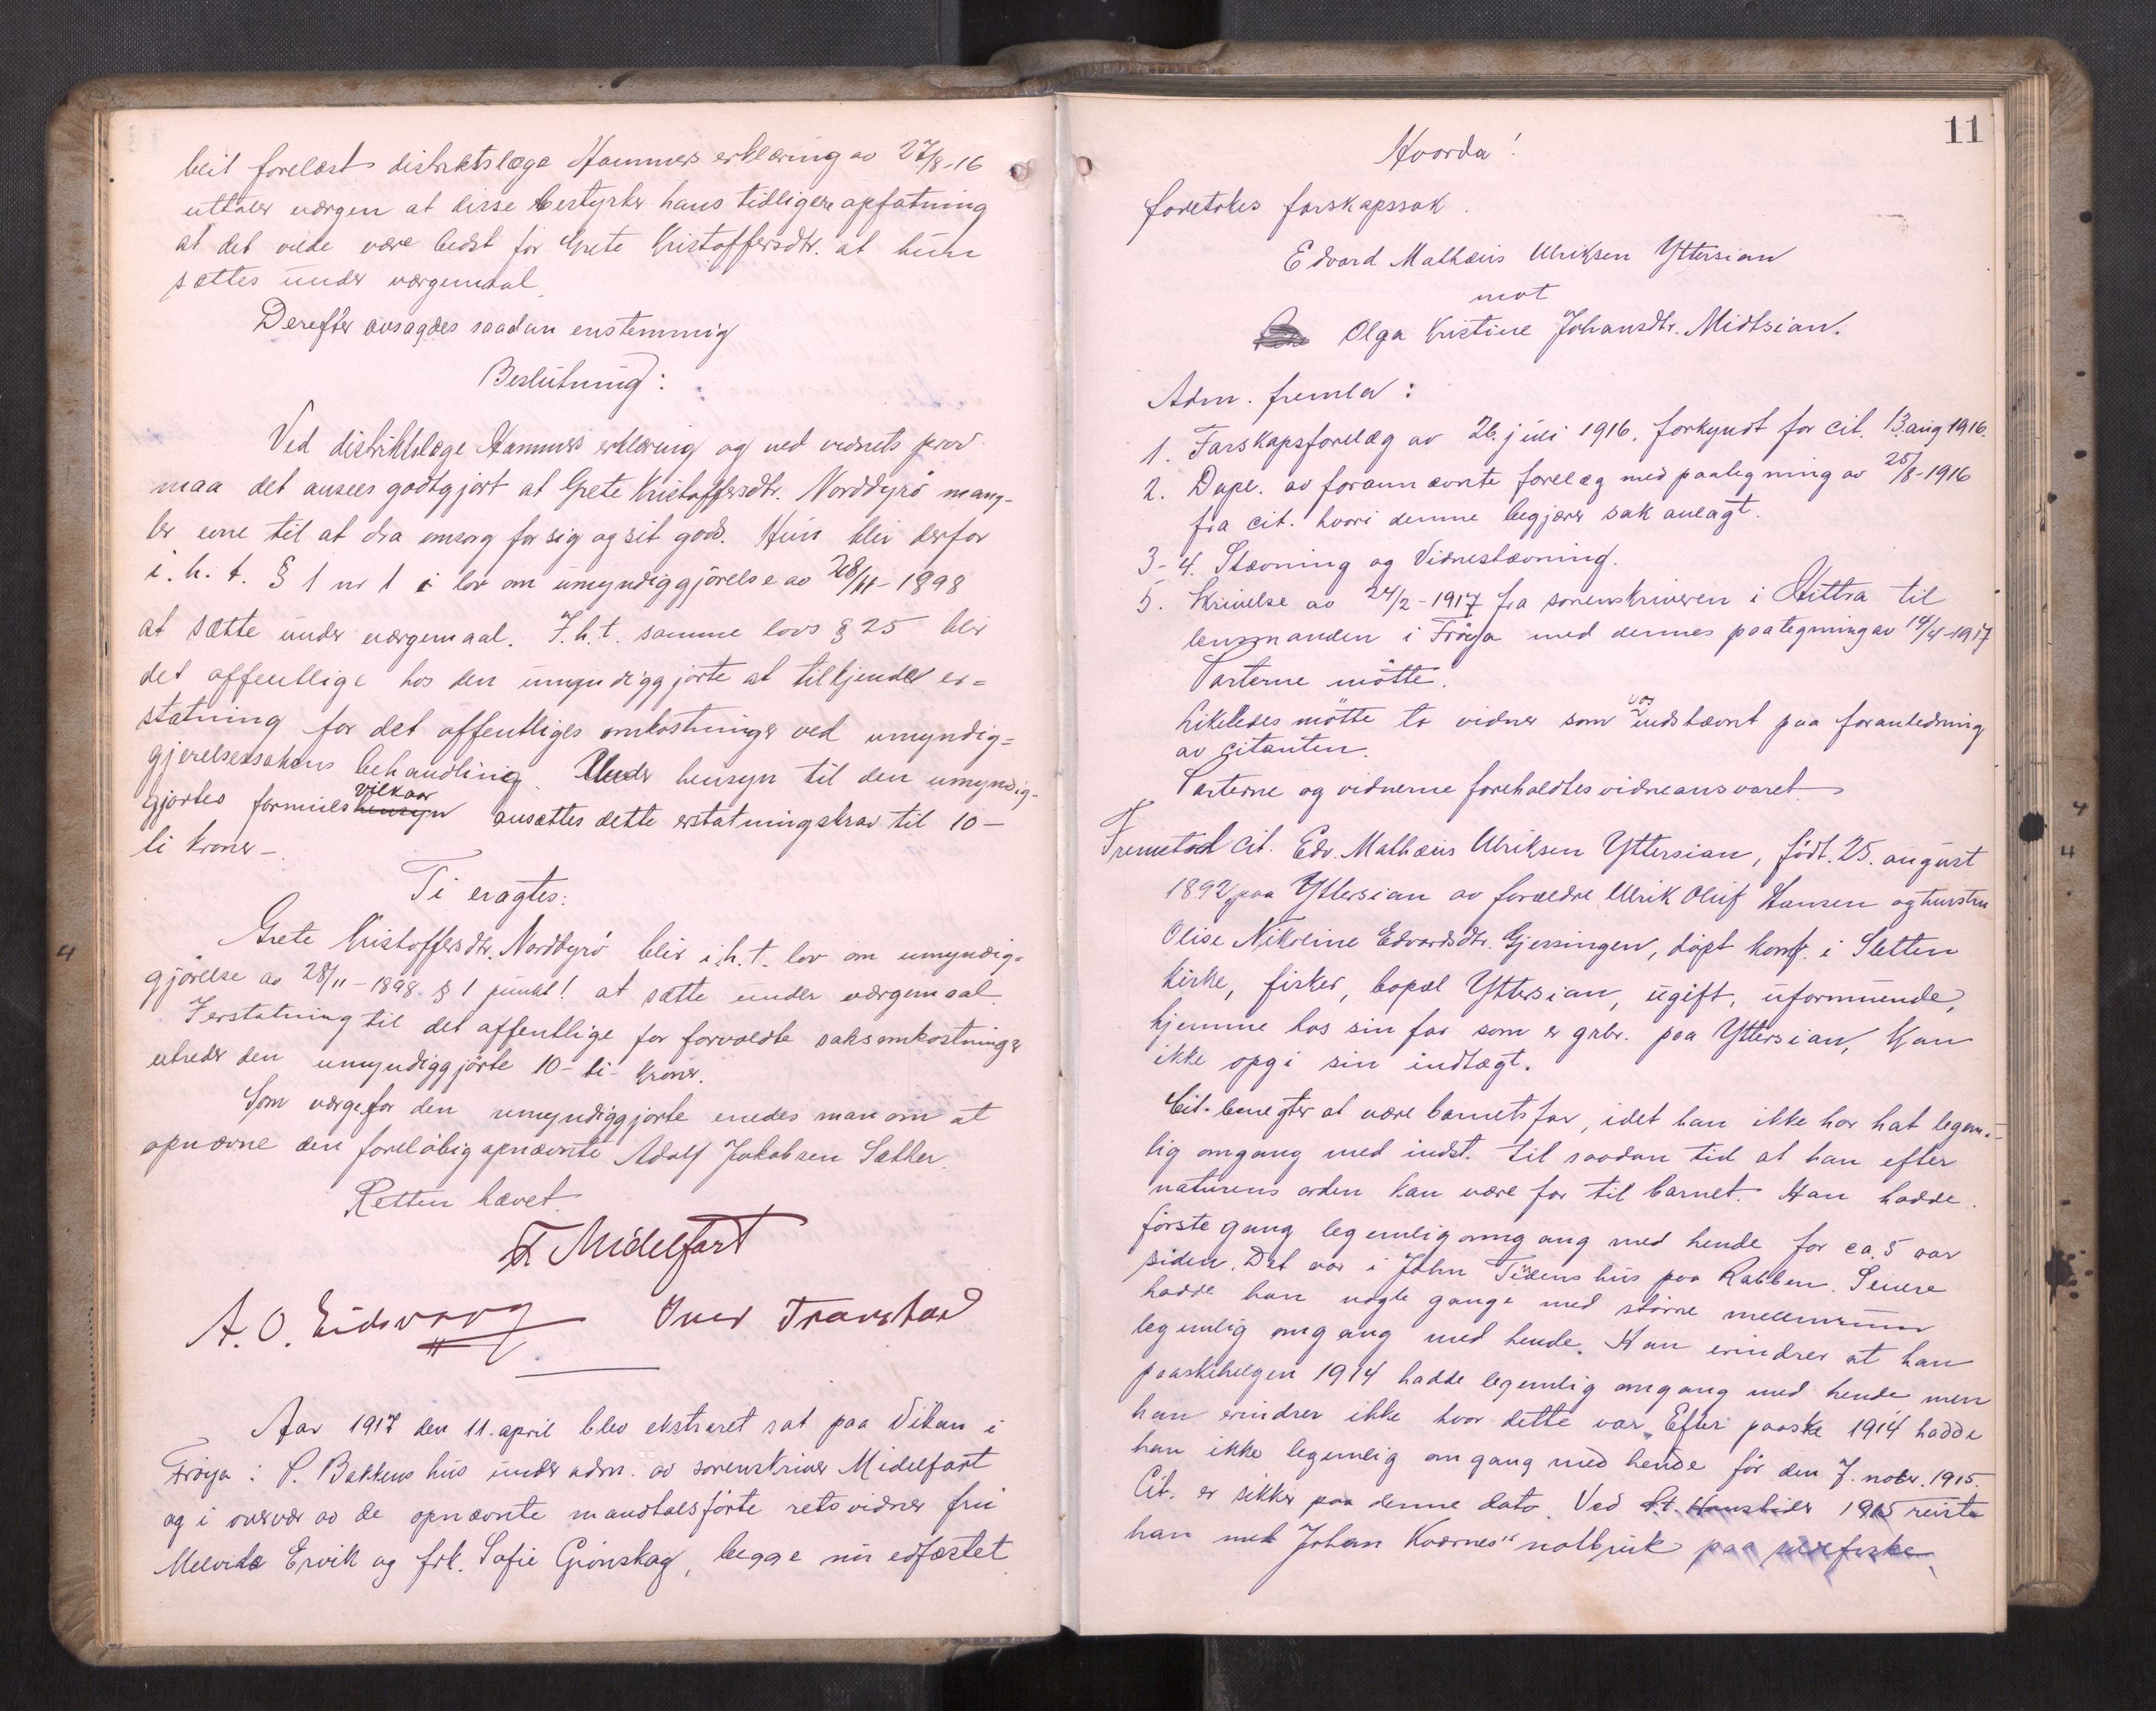 bleit forelæst distriktslæge Hammers erklæring av 27/8-16
uttaler værgen at disse bestyrker hans tidligere opfatning
at det vilde være bedst for Grete Kristoffersdtr. at hun
sættes under værgemaal.
Derefter avsagdes saadan enstemmig
Beslutning:
Ved distriktslæge Hammers erklæring og ved vidnets prov
maa det ansees godtgjort at Grete Kristoffersdtr. Norddyrö mang-
ler evne til at dra omsorg for sig og sit gods. Hun blir derfor
i. h. t. § 1 nr 1 i lov om umyndiggjörelse av 28/11-1898
at sætte under værgemaal. I.h.t. samme lovs § 25 blir
det offentlige hos den umyndiggjorte at tilkjende er=
statning for det offentliges omkostninger ved umyndig=
gjørelsessakens behandling. Under hensyn til den umyndig-
gjortes formues hensyn vilkaar ansættes dette erstatningskrav til 10-
ti kroner-.
Ti eragtes:
Grete Kristoffersdtr. Norddyrö blir i.h.t. lov om umyndig=
gjörelse av 28/11-1898 § 1 punkt 1 at sætte under værgemaal.
I erstatning til det offentlige for forvoldte saksomkostninger
utreder den umyndiggjörte 10- ti- kroner.
Som værge for den umyndiggjorte enedes man om at
opnævne den foreløbig opnævnte Adolf Jakobsen Sæther.
Retten hævet.
F Midelfart
A. O. Eidsvaag Iver Travstad
Aar 1917 den 11. april blev ekstraret sat paa Vikan i
Fröya i P. Bakkens hus under adm. av sorenskriver Midelfart
og i overvær av de opnævnte mandtalsförte retsvidner fru
Melvida Ervik og frk. Sofie Grönskag, begge nu edfæstet.
11
Hvorda!
foretokes farskapssak.
Edvard Mathæus Ulriksen Yttersian
mot
Olga Kristine Johansdtr. Midtsian.
Adm. fremla:
1. Farskapsforelæg av 26. juli 1916, forkyndt for cit. 13. aug 1916.
2. Dupl. av forannævnte forelæg med paategning av 25/8-1916
fra cit. hvori denne begjærer sak anlagt.
3-4. Stævning og Vidnestævning.
5. Skrivelse av 24/2-1917 fra sorenskriveren i Hittra til
lensmanden i Fröya med dennes paategning av 14/4-1917
Parterne mötte.
Likeledes mötte to vidner som var indstævnt paa foranledning
av citanten.
Parterne og vidnerne foreholdtes vidneansvaret.
Fremstod cit. Edv. Mathæus Ulriksen Yttersian, født. 25. august
1892, paa Yttersian av forældre Ulrik Oluf Hansen og hustru
Olise Nikoline Edvardsdtr. Gjessingen, döpt konf. i Sletten
kirke, fisker, bopæl Yttersian, ugift, uformuende,
hjemme hos sin far som er grbr. paa Yttersian, kan
ikke opgi sin indtægt.
Cit. benegter at være barnets far, idet han ikke har hat legem-
lig omgang med indst. til saadan tid at han efter
naturens orden kan være far til barnet. Han hadde
förste gang legemlig omgang med hende for ca. 5 aar
siden. Det var i John Tidens hus paa Rabben. Senere
hadde han nogle gange med större mellemrum
legemlig omgang med hende. Han erindrer at han
paaskehelgen 1914 hadde legemlig omgang med hende men
han erindrer ikke hvor dette var. Efter paaske 1914 hadde
han ikke legemlig omgang med hende för den 7. novbr. 1915.
Cit. er sikker paa denne dato. Ved St. Hanstider 1915 reiste
han med Johan Kværnes notbruk paa sildefiske